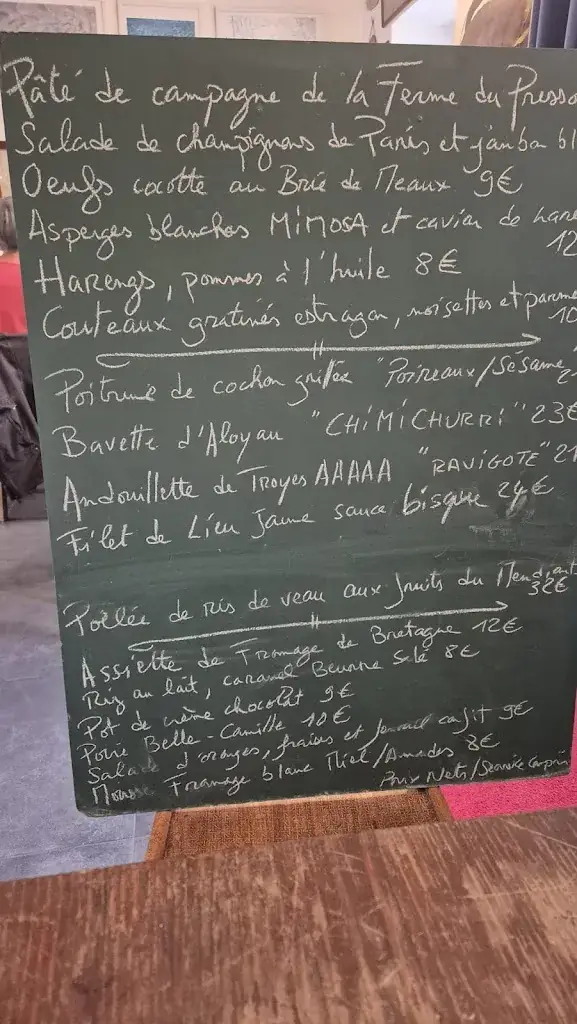 Pâté de campagne de la Ferme du Presso
Salade de champignons de Paris et jambon bl
Oeufs cocotte au Brie de Meaux 9€
Asperges blanches MiMOSA et caviar de hare
12
Harengs, pommes à l'huile 8€
Couteaux gratinés estragon, noisettes et parme
10
Poitrine de cochon grillée "Poireaux/Sésame
2
Bavette d'Aloyau "CHiMiCHURRi" 23€
Andouillette de Troyes AAAAA "RAViGOTE" 21
Filet de Lieu Jaune sauce bisque 24€
Poêlée de Ris de veau aux fruits du Mendiant
32€
Assiette de Fromage de Bretagne 12€
Riz au lait, caramel Beurre Salé 8€
Pot de crème chocolat 9€
Poire Belle-Camille 10€
Salade d'oranges, fraises et confit 9€
Mousse Fromage blanc Miel/Amandes 8€
Prix Nets/Service Compris